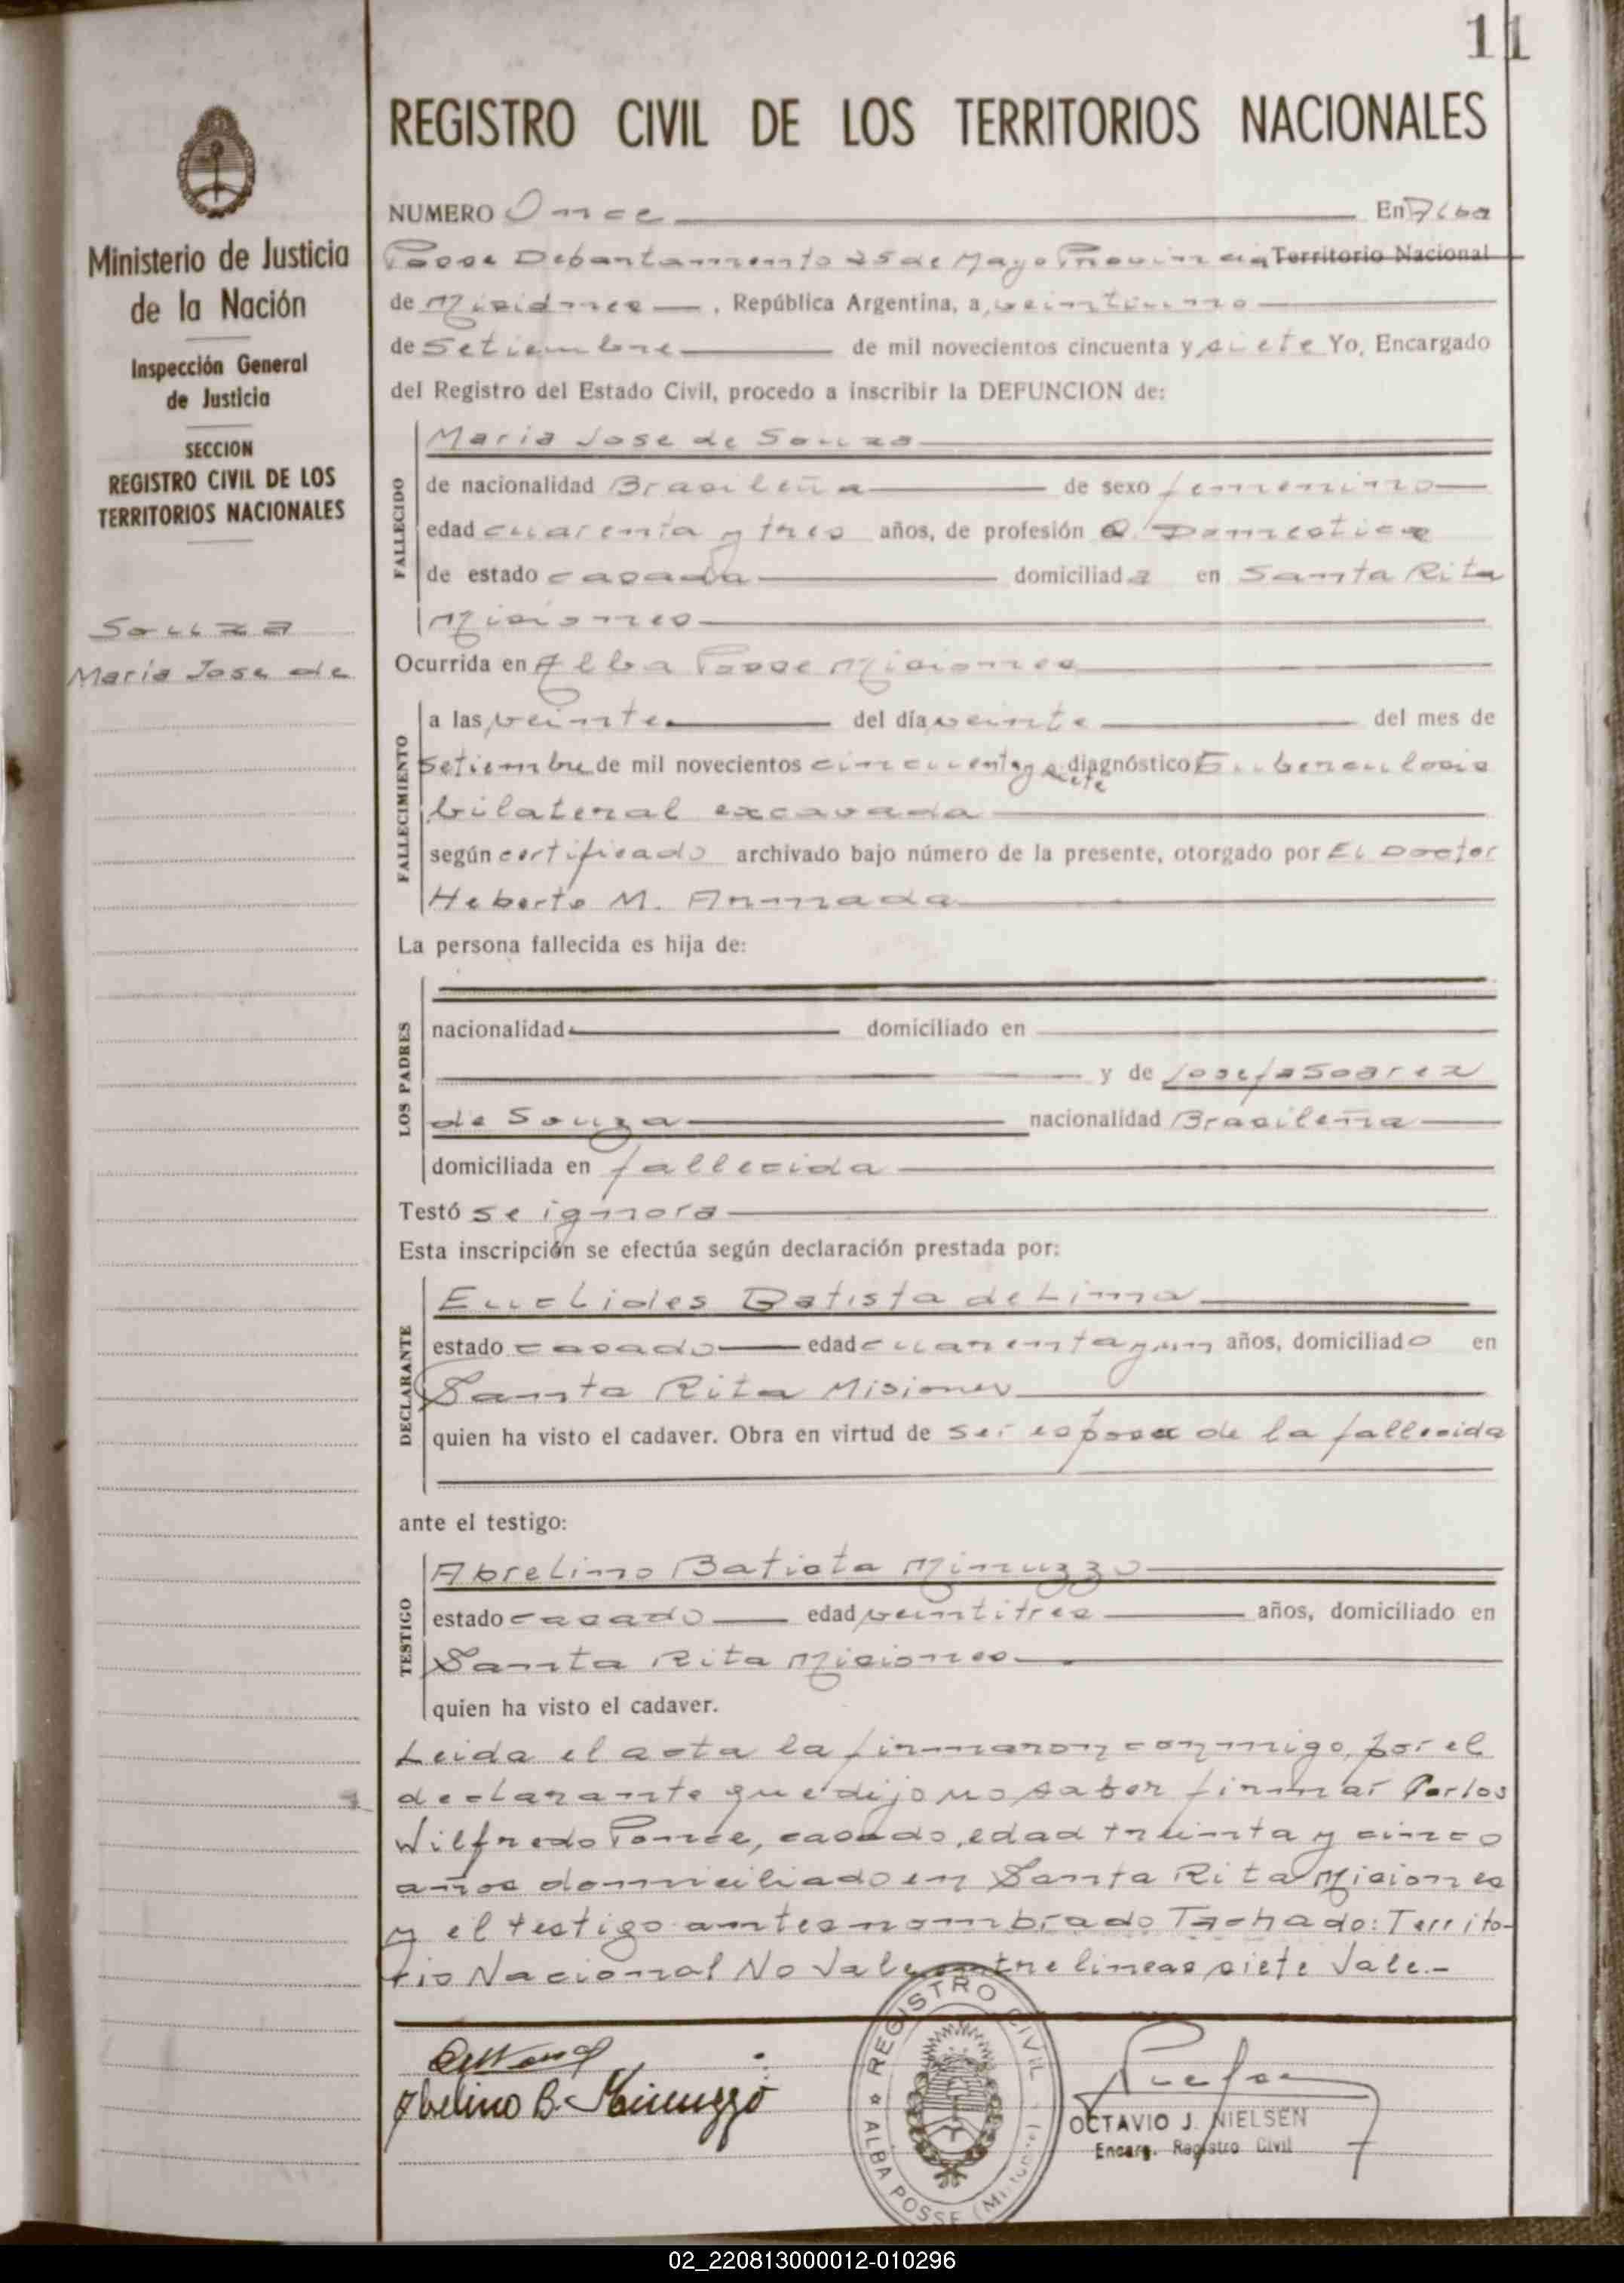 11
REGISTRO CIVIL DE LOS TERRITORIOS NACIONALES
Ministerio de Justicia
de la Nación
Inspección General
de Justicia
SECCION
REGISTRO CIVIL DE LOS
TERRITORIOS NACIONALES
Souza
Maria Jose de
NUMERO Once En Alba
Posse Departamento 25 de Mayo Provincia Territorio Nacional
de Misiones, República Argentina, a veintiuno
de Setiembre de mil novecientos cincuenta y siete Yo, Encargado
del Registro del Estado Civil, procedo a inscribir la DEFUNCION de:
FALLECIDO
Maria Jose de Souza
de nacionalidad Brasileña de sexo femenino
edad cuarenta y tres años, de profesión Q. Domestica
de estado casada domiciliada en Santa Rita
Misiones
Ocurrida en Alba Posse Misiones
FALLECIMIENTO
a las veinte del día veinte del mes de
Setiembre de mil novecientos cincuenta y siete diagnóstico Tuberculosis
bilateral excavada
según certificado archivado bajo número de la presente, otorgado por El Doctor
Heberto M. Armada
La persona fallecida es hija de:
LOS PADRES
nacionalidad domiciliado en
y de Josefa Soarez
de Souza nacionalidad Brasileña
domiciliada en fallecida
Testó se ignora
Esta inscripción se efectúa según declaración prestada por:
DECLARANTE
Euclides Batista de Lima
estado casado edad cuarenta y un años, domiciliado en
Santa Rita Misiones
quien ha visto el cadaver. Obra en virtud de ser esposo de la fallecida
ante el testigo:
TESTIGO
Abrelino Batista Minuzzo
estado casado edad veintitres años, domiciliado en
Santa Rita Misiones
quien ha visto el cadaver.
Leida el acta la firmaron conmigo, por el
declarante que dijo no saber firmar Carlos
Wilfredo Ponce, casado, edad treinta y cinco
años domiciliado en Santa Rita Misiones
y el testigo antes nombrado Tachado: Territo-
rio Nacional No Vale entre lineas siete Vale.-
Abelino B. Minuzzo
REGISTRO CIVIL
ALBA POSSE (Misiones)
OCTAVIO J. NIELSEN
Encarg. Registro Civil
02_220813000012-010296